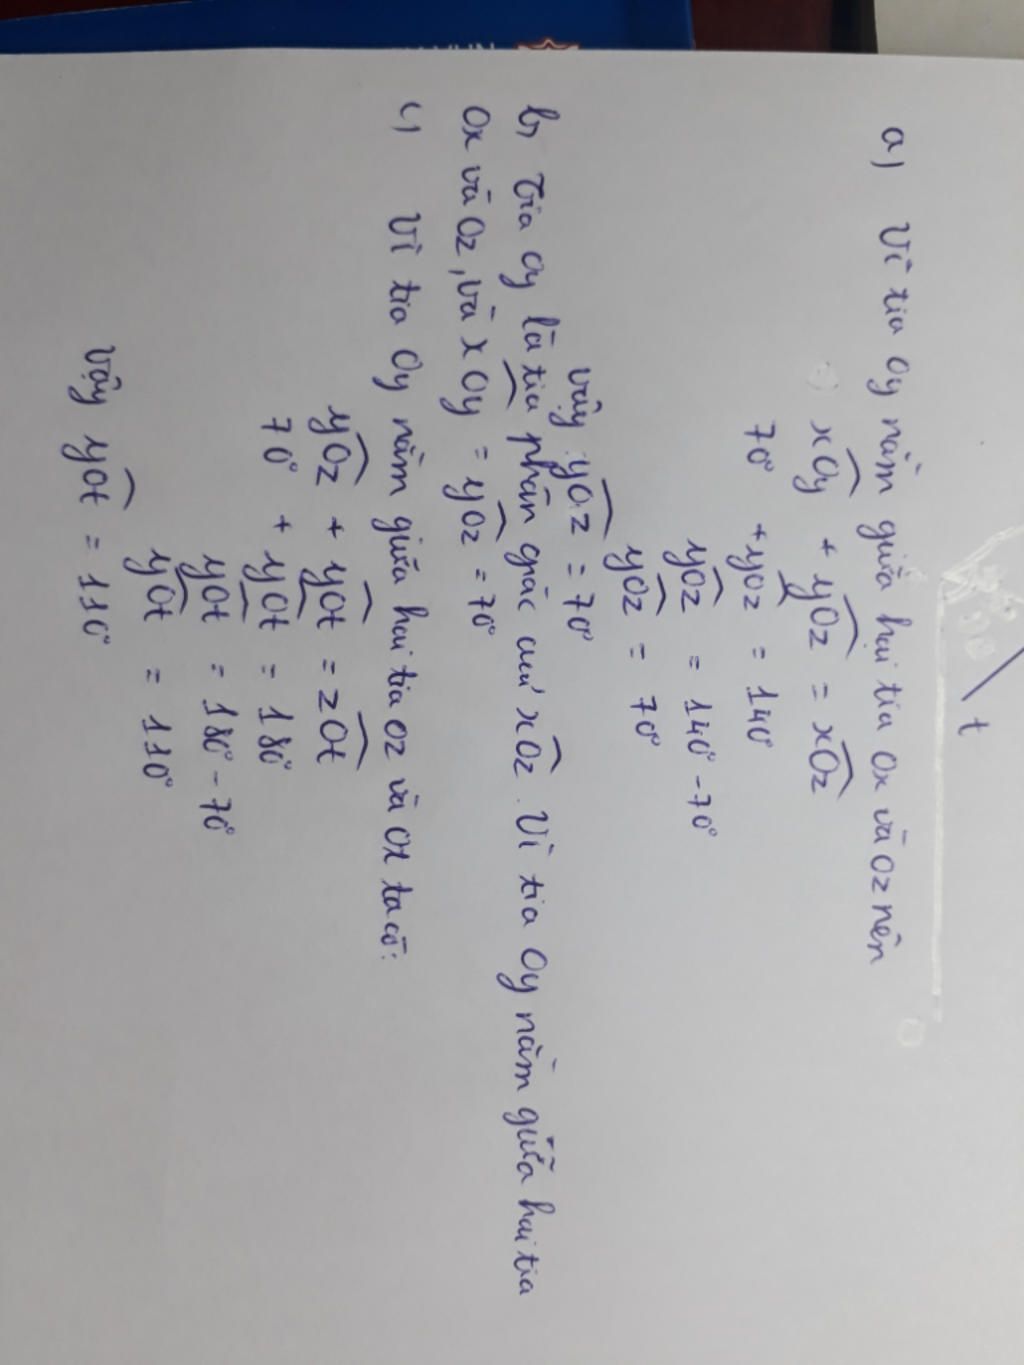 t
a) Vì tia Oy nằm giữa hai tia Ox và Oz nên
xOy + yOz = xOz
70° + yOz = 140°
yOz = 140° - 70°
yOz = 70°
Vậy yOz = 70°
b) Tia Oy là tia phân giác của xOz. Vì tia Oy nằm giữa hai tia
Ox và Oz, và xOy = yOz = 70°
c) Vì tia Oy nằm giữa hai tia Oz và Ot ta có:
yOz + yOt = zOt
70° + yOt = 180°
yOt = 180° - 70°
yOt = 110°
Vậy yOt = 110°